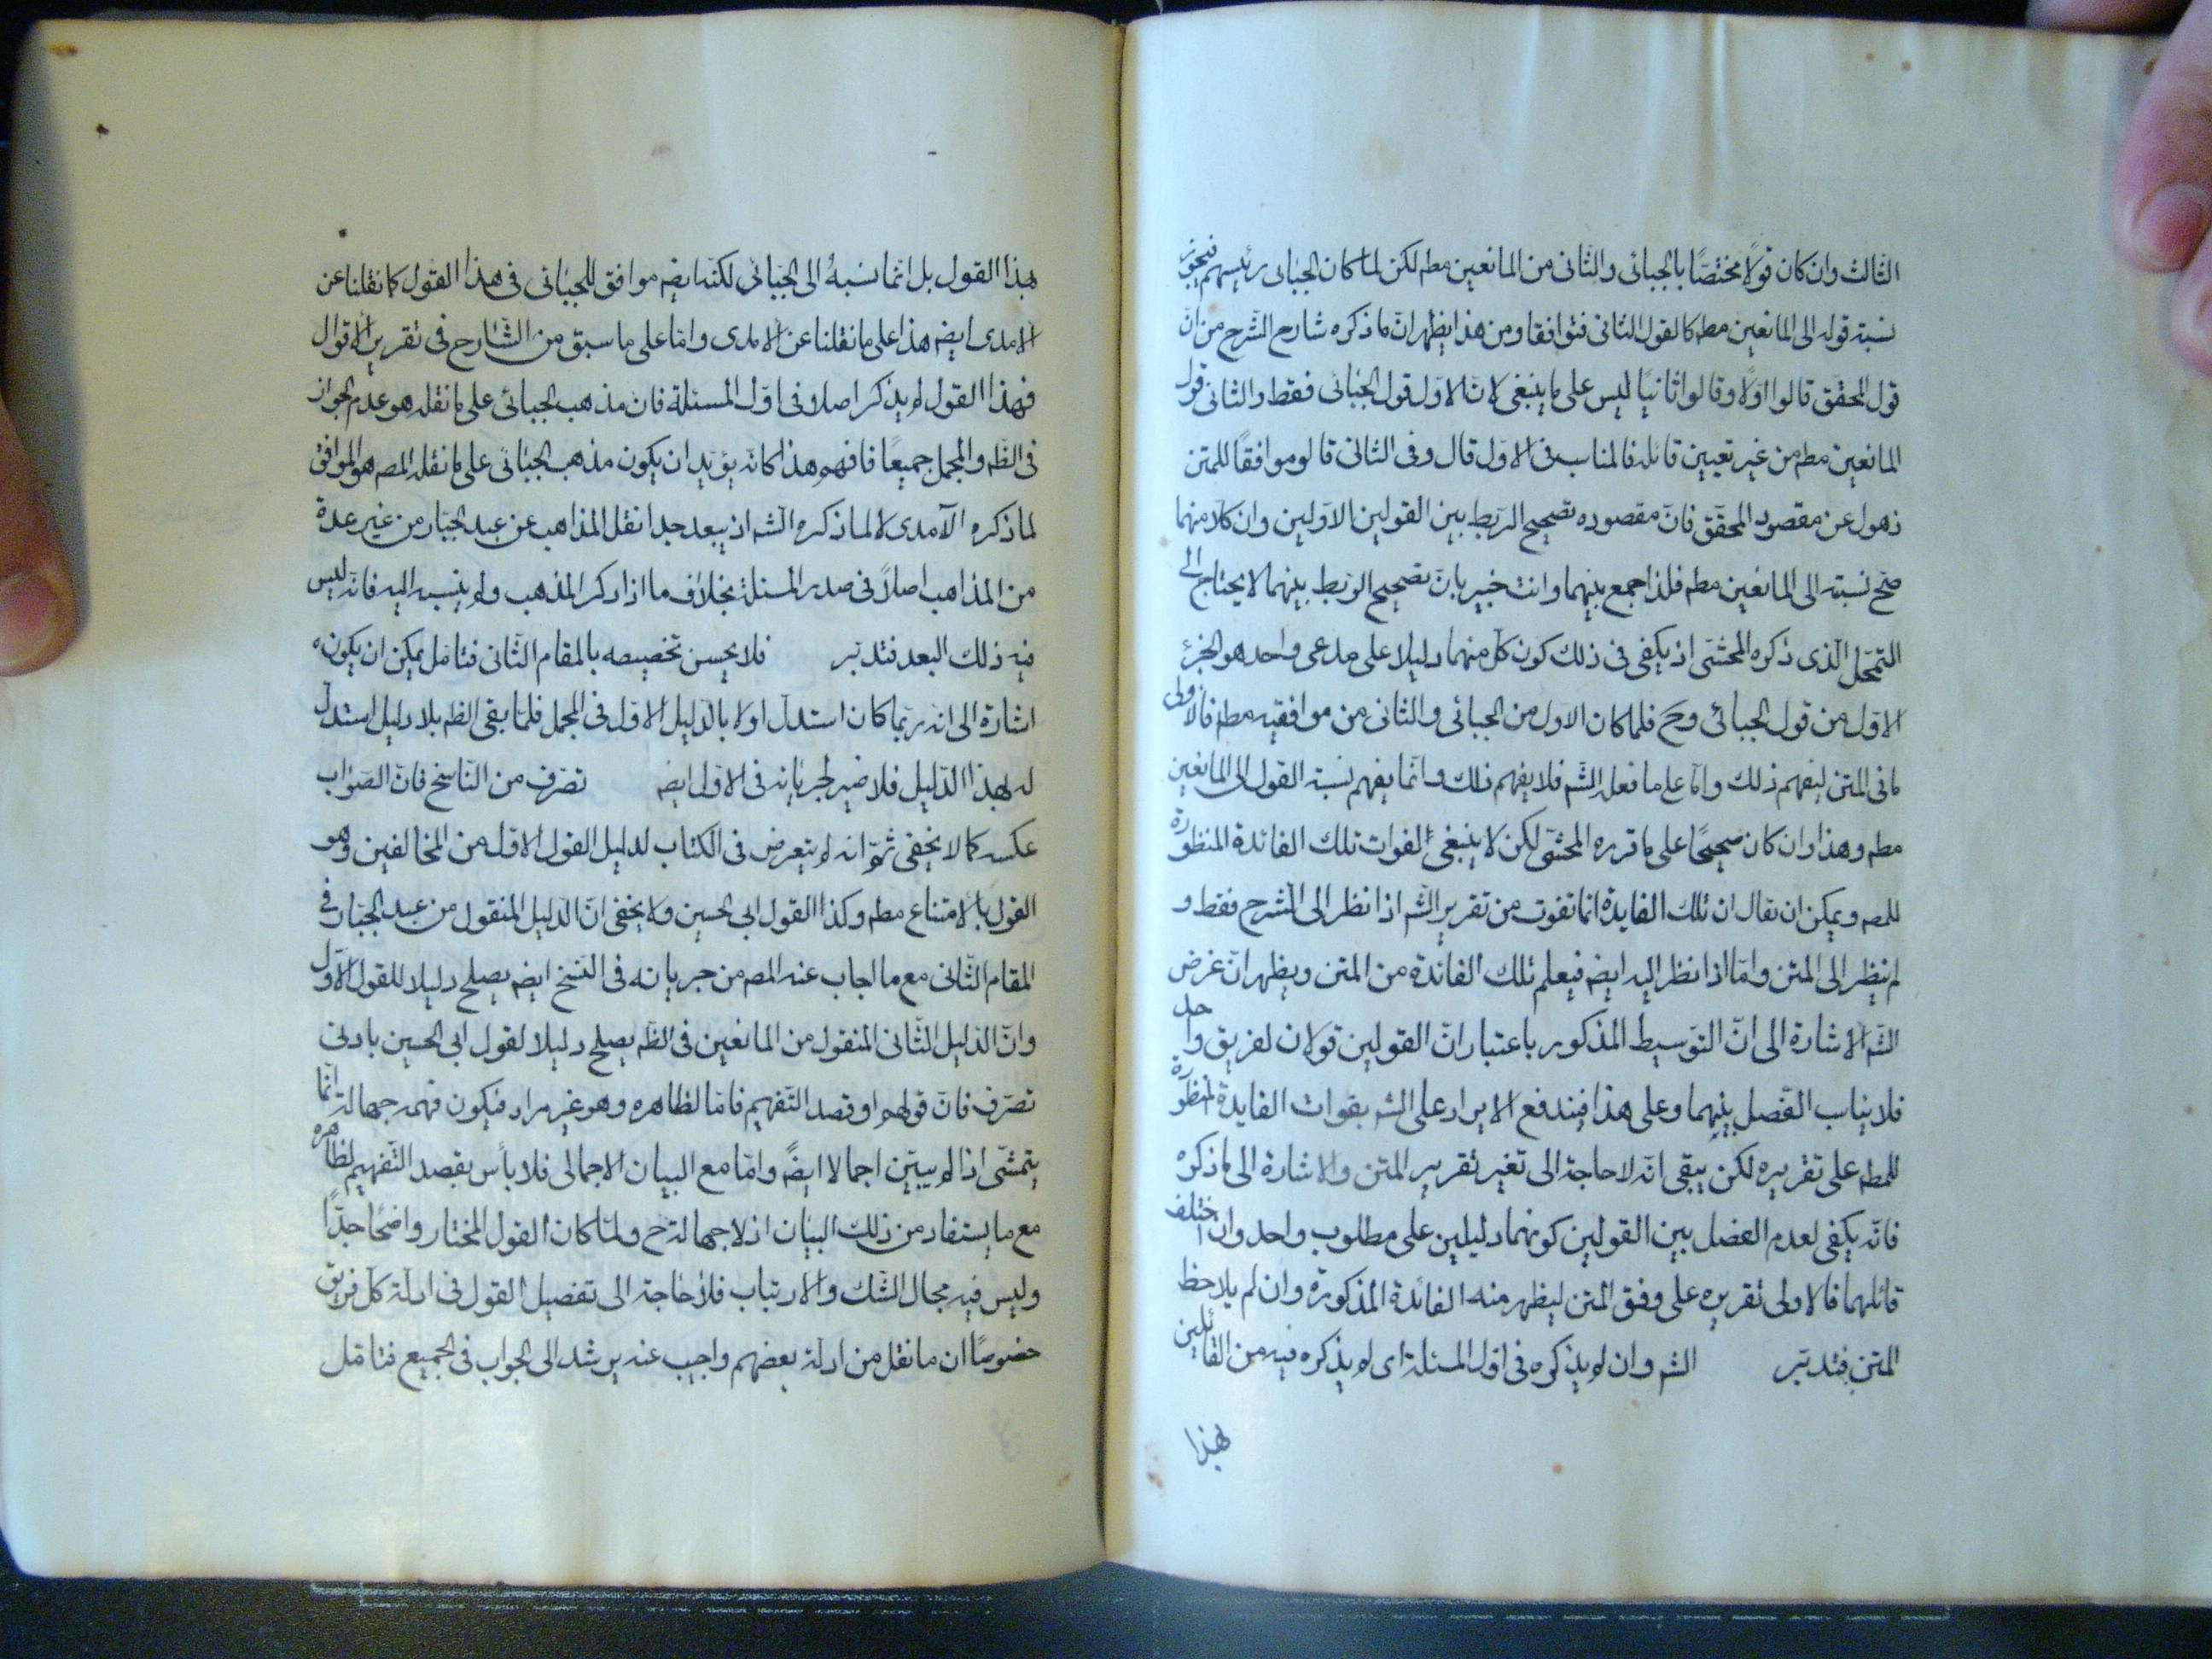 الثالث وان كان قولا مختصّا بالجبائى والثانى من المانعين مطم لكن لما كان الجبائى رئيسهم فيجوز
نسبة قوله الى المانعين مطم كالقول الثانى فتوافقا ومن هذا يظهر انّ ما ذكره شارح الشرح من انّ
قول المحقق قالوا اوّلا وقالوا ثانيًا ليس على ما ينبغى لانّ الاوّل قول الجبائى فقط والثانى قول
المانعين مطم من غير تعيين قائله فالمناسب فى الاوّل قال وفى الثانى قالو موافقًا للمتن
ذهول عن مقصود المحقّق فانّ مقصوده تصحيح الربط بين القولين الاوّلين وان كلا منهما
صحّ نسبته الى المانعين مطم فلذا جمع بينهما وانت خبير بانّ تصحيح الربط بينهما لا يحتاج الى
التمحّل الّذى ذكره المحشى اذ يكفى فى ذلك كون كلّ منهما دليلا على مدعى واحد هو الجزء
الاوّل من قول الجبائى وح فلما كان الاوّل من الجبائى والثانى من موافقيه مطم فالاولى
ما فى المتن ليفهم ذلك وامّا على ما فعله الشم فلا يفهم ذلك وانّما يفهم نسبة القول الى المانعين
مطم وهذا وان كان صحيحًا على ما قرره المحشّى لكن لا ينبغى لفوات تلك الفائدة المنظورة
للمصم ويمكن ان يقال ان تلك الفايدة انما تفوت من تقرير الشم اذا نظر الى الشرح فقط و
لم ينظر الى المتن وامّا اذا نظر اليه ايضم فيعلم تلك الفائدة من المتن ويظهر انّ غرض
الشم الاشارة الى انّ التوسيط المذكور باعتبار انّ القولين قولان لفريق واحد
فلا يناسب الفصل بينهما وعلى هذا فيندفع الايراد على الشم بفوات الفايدة المنظورة
للمطم على تقريره لكن يبقى انّه لا حاجة الى تغير تقرير المتن والاشارة الى ما ذكره
فانّه يكفى لعدم الفصل بين القولين كونهما دليلين على مطلوب واحد وان اختلف
قائلهما فالاولى تقريره على وفق المتن ليظهر منه الفائدة المذكورة وان لم يلاحظ
المتن فتدبّر الشم وان لم يذكره فى اوّل المسئلة اى لم يذكره فيه من القائلين
لهذا
بهذا القول بل انّما نسبهُ الى الجبائى لكنّه ايضم موافق للجبائى فى هذا القول كما نقلنا عن
الامدى ايضم هذا على ما نقلنا عن الامدى وامّا على ما سبق من الشّارح فى تقرير الاقوال
فهذا القول لم يذكر اصلا فى اوّل المسئلة فان مذهب الجبائى على ما نقله هو عدم الجواز
فى الظم والمجمل جميعًا فافهم هذا كانّه يؤيّد ان يكون مذهب الجبائى على ما نقله المصم هو الموافق
لما ذكره الآمدى لا لما ذكره الشم اذ يبعد جدا نقل المذاهب عن عبد الجبّار من غير عدة
من المذاهب اصلاً فى صدر المسئلة بخلاف ما اذا ذكر المذهب ولم ينسبه اليه فانّه ليس
فيه ذلك البعد فتدبّر فلا يحسن تخصيصه بالمقام الثّانى فتامّل يمكن ان يكون
اشارة الى انّه ربّما كان استدلّ اولا بالدّليل الاوّل فى المجمل فلمّا بقى الظم بلا دليل استدلّ
له بهذا الدّليل فلا ضير لجريانه فى الاوّل ايضم تصرّف من النّاسخ فانّ الصّواب
عكسه كما لا يخفى ثمّ انه لم يتعرض فى الكتاب لدليل القول الاوّل من المخالفين وهو
القول بالامتناع مطم وكذا القول ابى الحسين ولا يخفى انّ الدّليل المنقول من عبد الجبّار فى
المقام الثّانى مع ما اجاب عنه المصم من جريانه فى النّسخ ايضم يصلح دليلا للقول الاوّل
وانّ الدّليل الثّانى المنقول من المانعين فى الظم يصلح دليلا لقول ابى الحسين بادنى
تصرّف فانّ قولهم او قصد التّفهيم فامّا لظاهره وهو غير مراد فيكون فهمه جهالة انّما
يتمشّى اذا لم يبيّن اجمالا ايضًم وامّا مع البيان الاجمالى فلا بأس بقصد التّفهيم لظاهره
مع ما يستفاد من ذلك البيان اذ لا جهالة ح ولمّا كان القول المختار واضحًا جدًّا
وليس فيه مجال الشّك والارتياب فلا حاجة الى تفصيل القول فى ادلّة كلّ فريق
خصوصًا ان ما نقل من ادلّة بعضهم واجيب عنه يرشد الى الجواب فى الجميع فتامّل